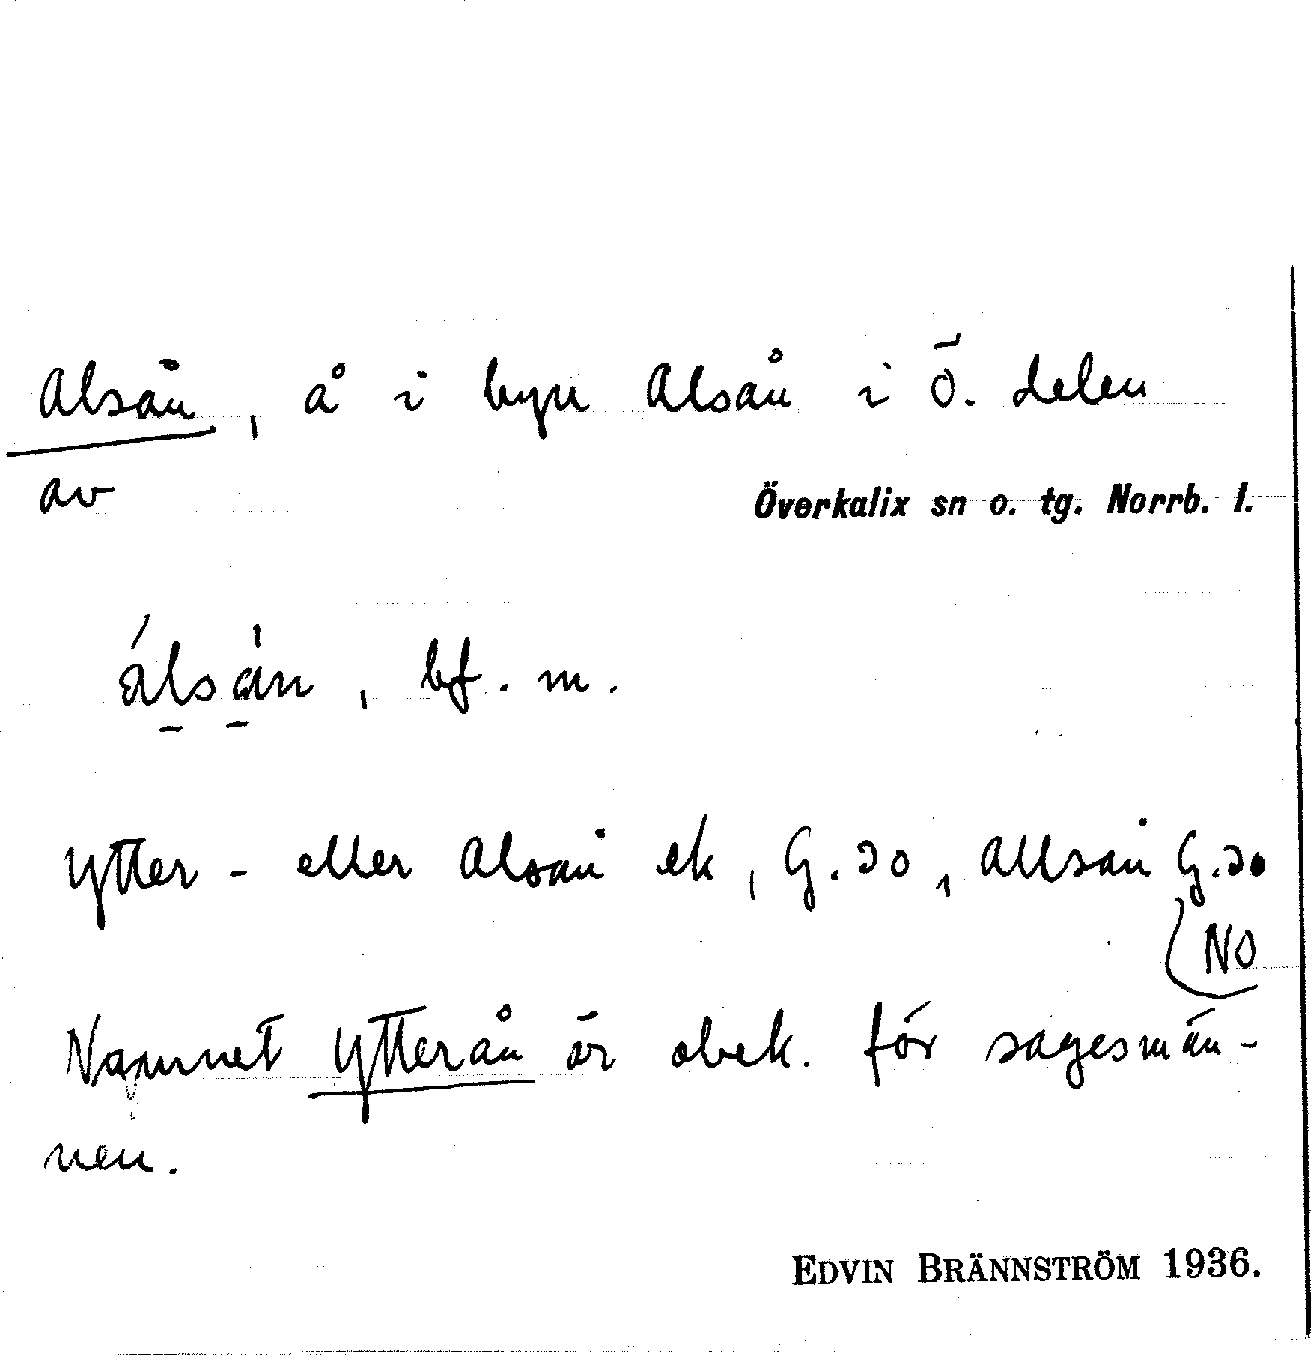 Alsån, å i byn Alsån i ö. delen
av Överkalix sn o. tg. Norrb. l.
álsån, bf. m.
Ytter- eller Alsån ek, G. 30, Allsån G. 30
(NO
Namnet Ytterån är obek. för sagesmän-
nen.
EDVIN BRÄNNSTRÖM 1936.